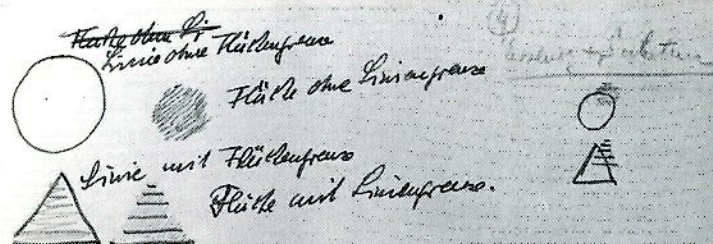 Fläche ohne Li
Linie ohne Flächengrenze
Fläche ohne Liniengrenze
Linie mit Flächengrenze
Fläche mit Liniengrenze.
(4)